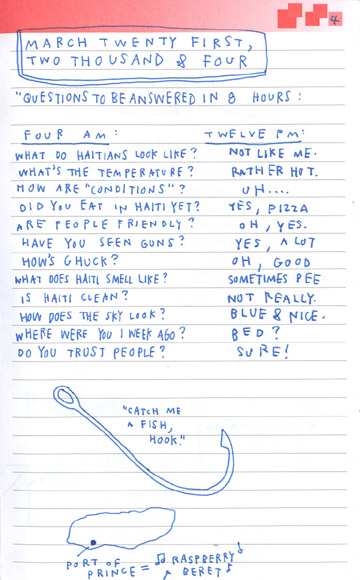 4
MARCH TWENTY FIRST,
TWO THOUSAND & FOUR
"QUESTIONS TO BE ANSWERED IN 8 HOURS:
FOUR AM: TWELVE PM:
WHAT DO HAITIANS LOOK LIKE? NOT LIKE ME.
WHAT'S THE TEMPERATURE? RATHER HOT.
HOW ARE "CONDITIONS"? UH....
DID YOU EAT IN HAITI YET? YES, PIZZA
ARE PEOPLE FRIENDLY? OH, YES.
HAVE YOU SEEN GUNS? YES, A LOT
HOW'S CHUCK? OH, GOOD
WHAT DOES HAITI SMELL LIKE? SOMETIMES PEE
IS HAITI CLEAN? NOT REALLY.
HOW DOES THE SKY LOOK? BLUE & NICE.
WHERE WERE YOU 1 WEEK AGO? BED?
DO YOU TRUST PEOPLE? SURE!
"CATCH ME
A FISH,
HOOK."
PORT OF
PRINCE = ♫ RASPBERRY ♪
♪ BERET ♪